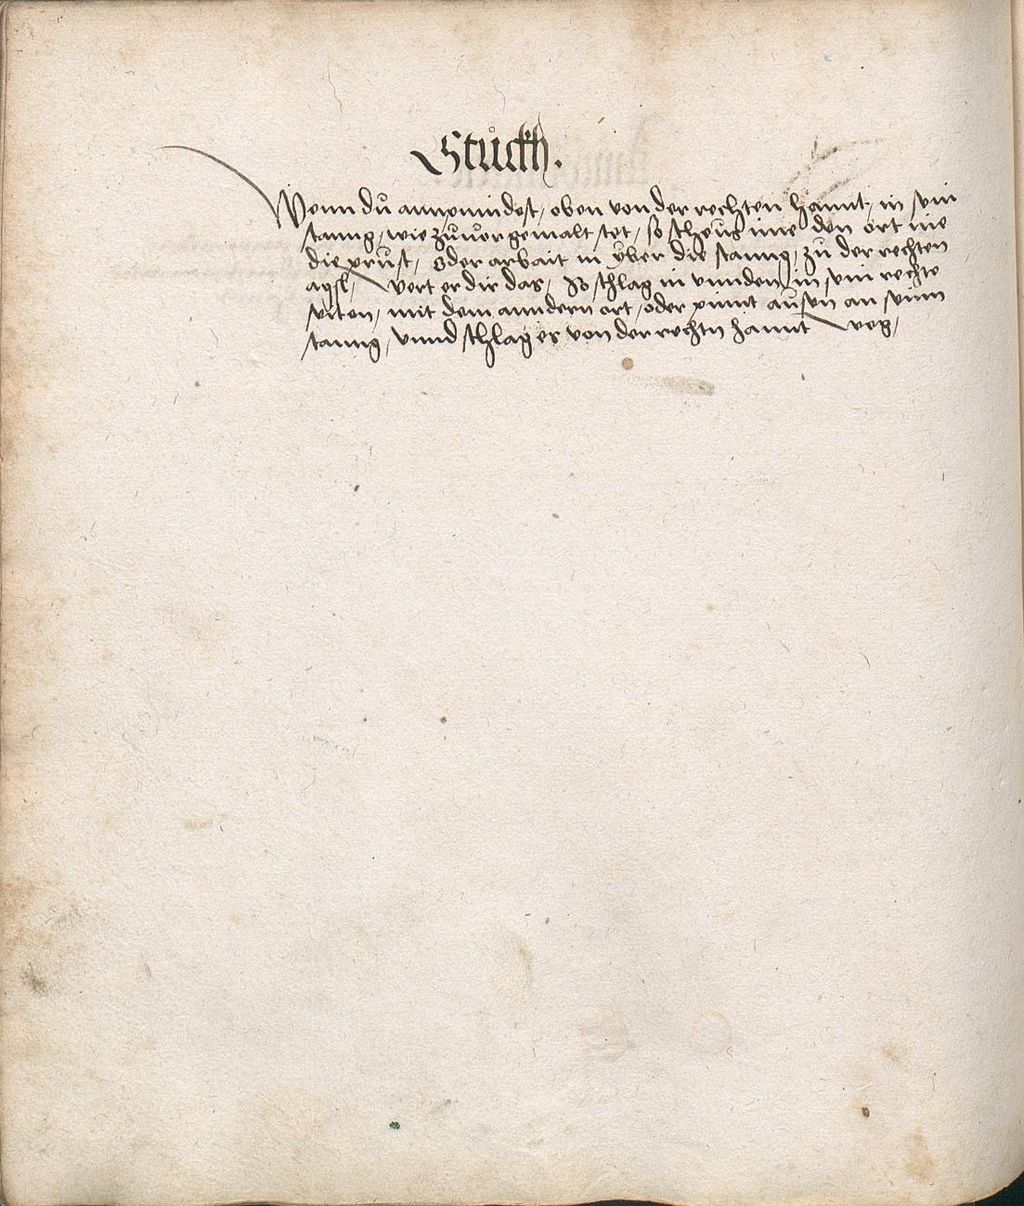 Stuckh.
Wenn du annpindest, oben von der rechten hannt, in sein
stanng, wie zuuor gemalt stet, so scheus ime den ort nie
die prust, Oder arbait in yber die stanng, zu der rechten
agsl, Vert er dir das, So schlag in vnnden in sein rechte
seiten, mit dem anndern ort, oder pinnt ausen an seinn
stanng, vnnd schlag es von der rechtn hannt weg,